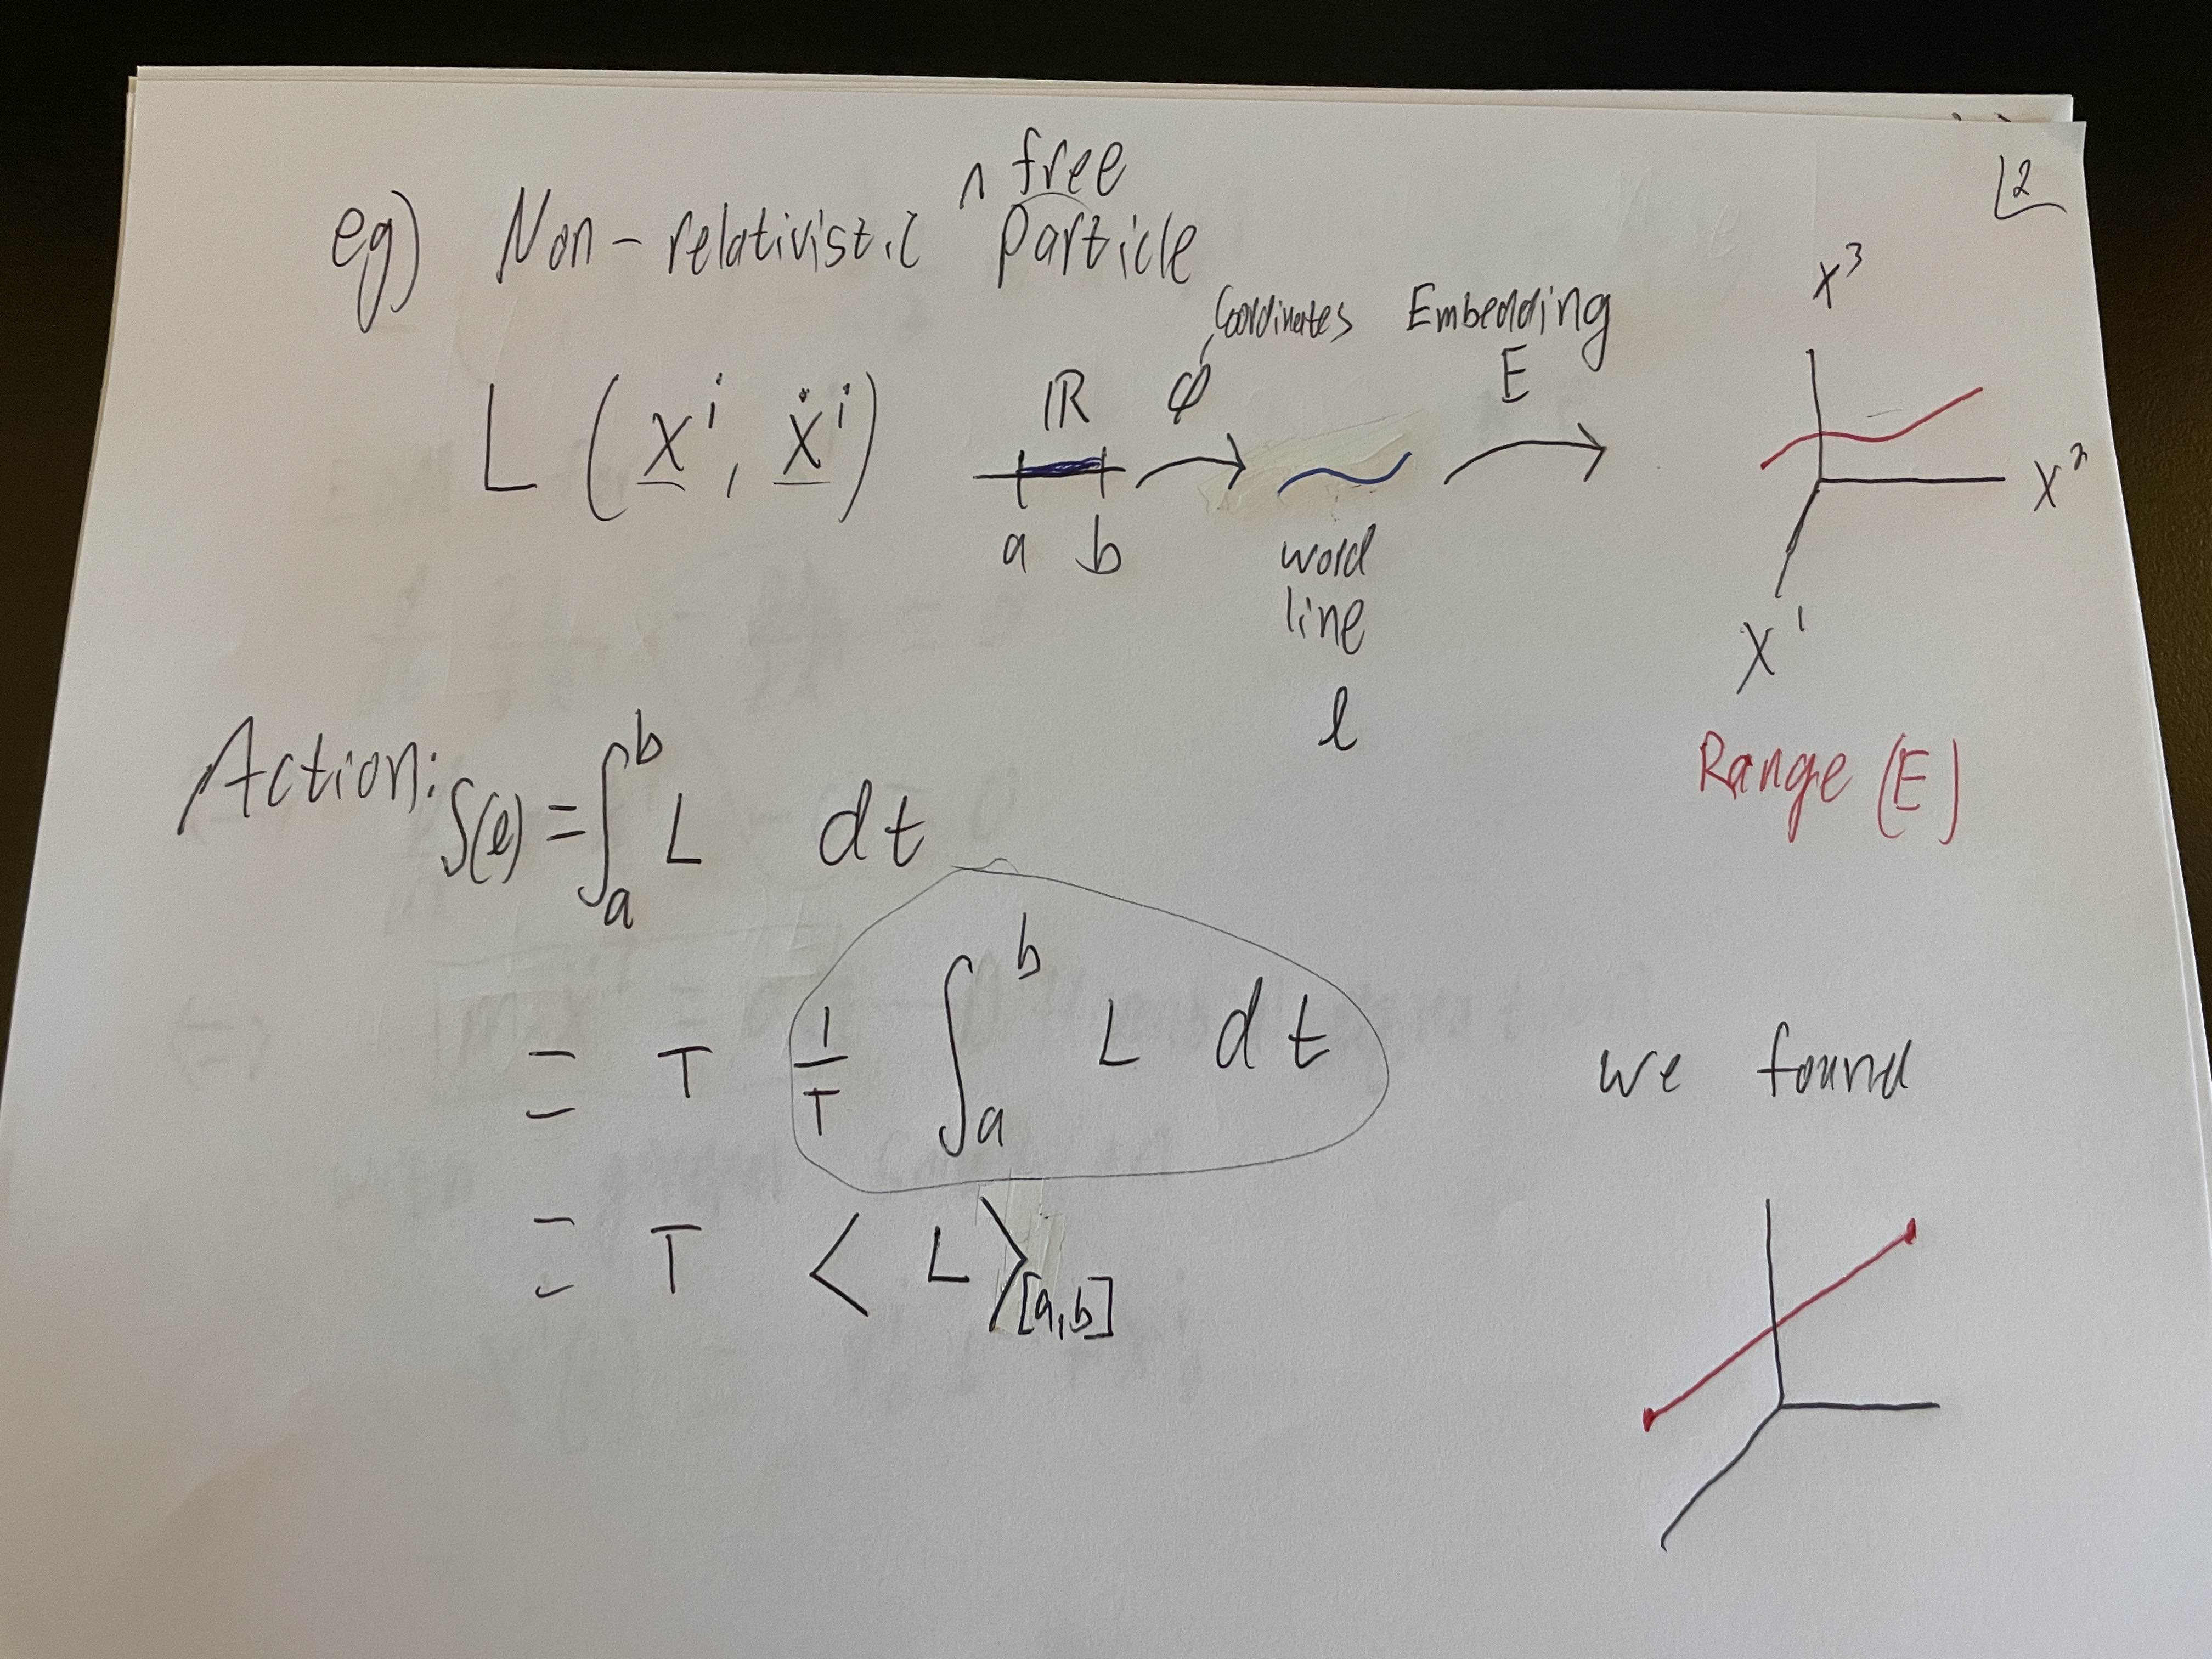 2
free
eg) Non-relativistic ^ particle
Coordinates Embedding
L (x̲ⁱ, ẋ̲ⁱ) ℝ φ E
a b
word
line
l
x³
x²
x¹
Range (E)
Action: S(l) = ∫ₐᵇ L dt
= T 1/T ∫ₐᵇ L dt
= T < L >[a,b]
we found